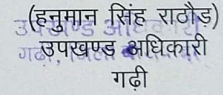 (हनुमान सिंह राठौड़)
उपखण्ड अधिकारी
गढ़ी